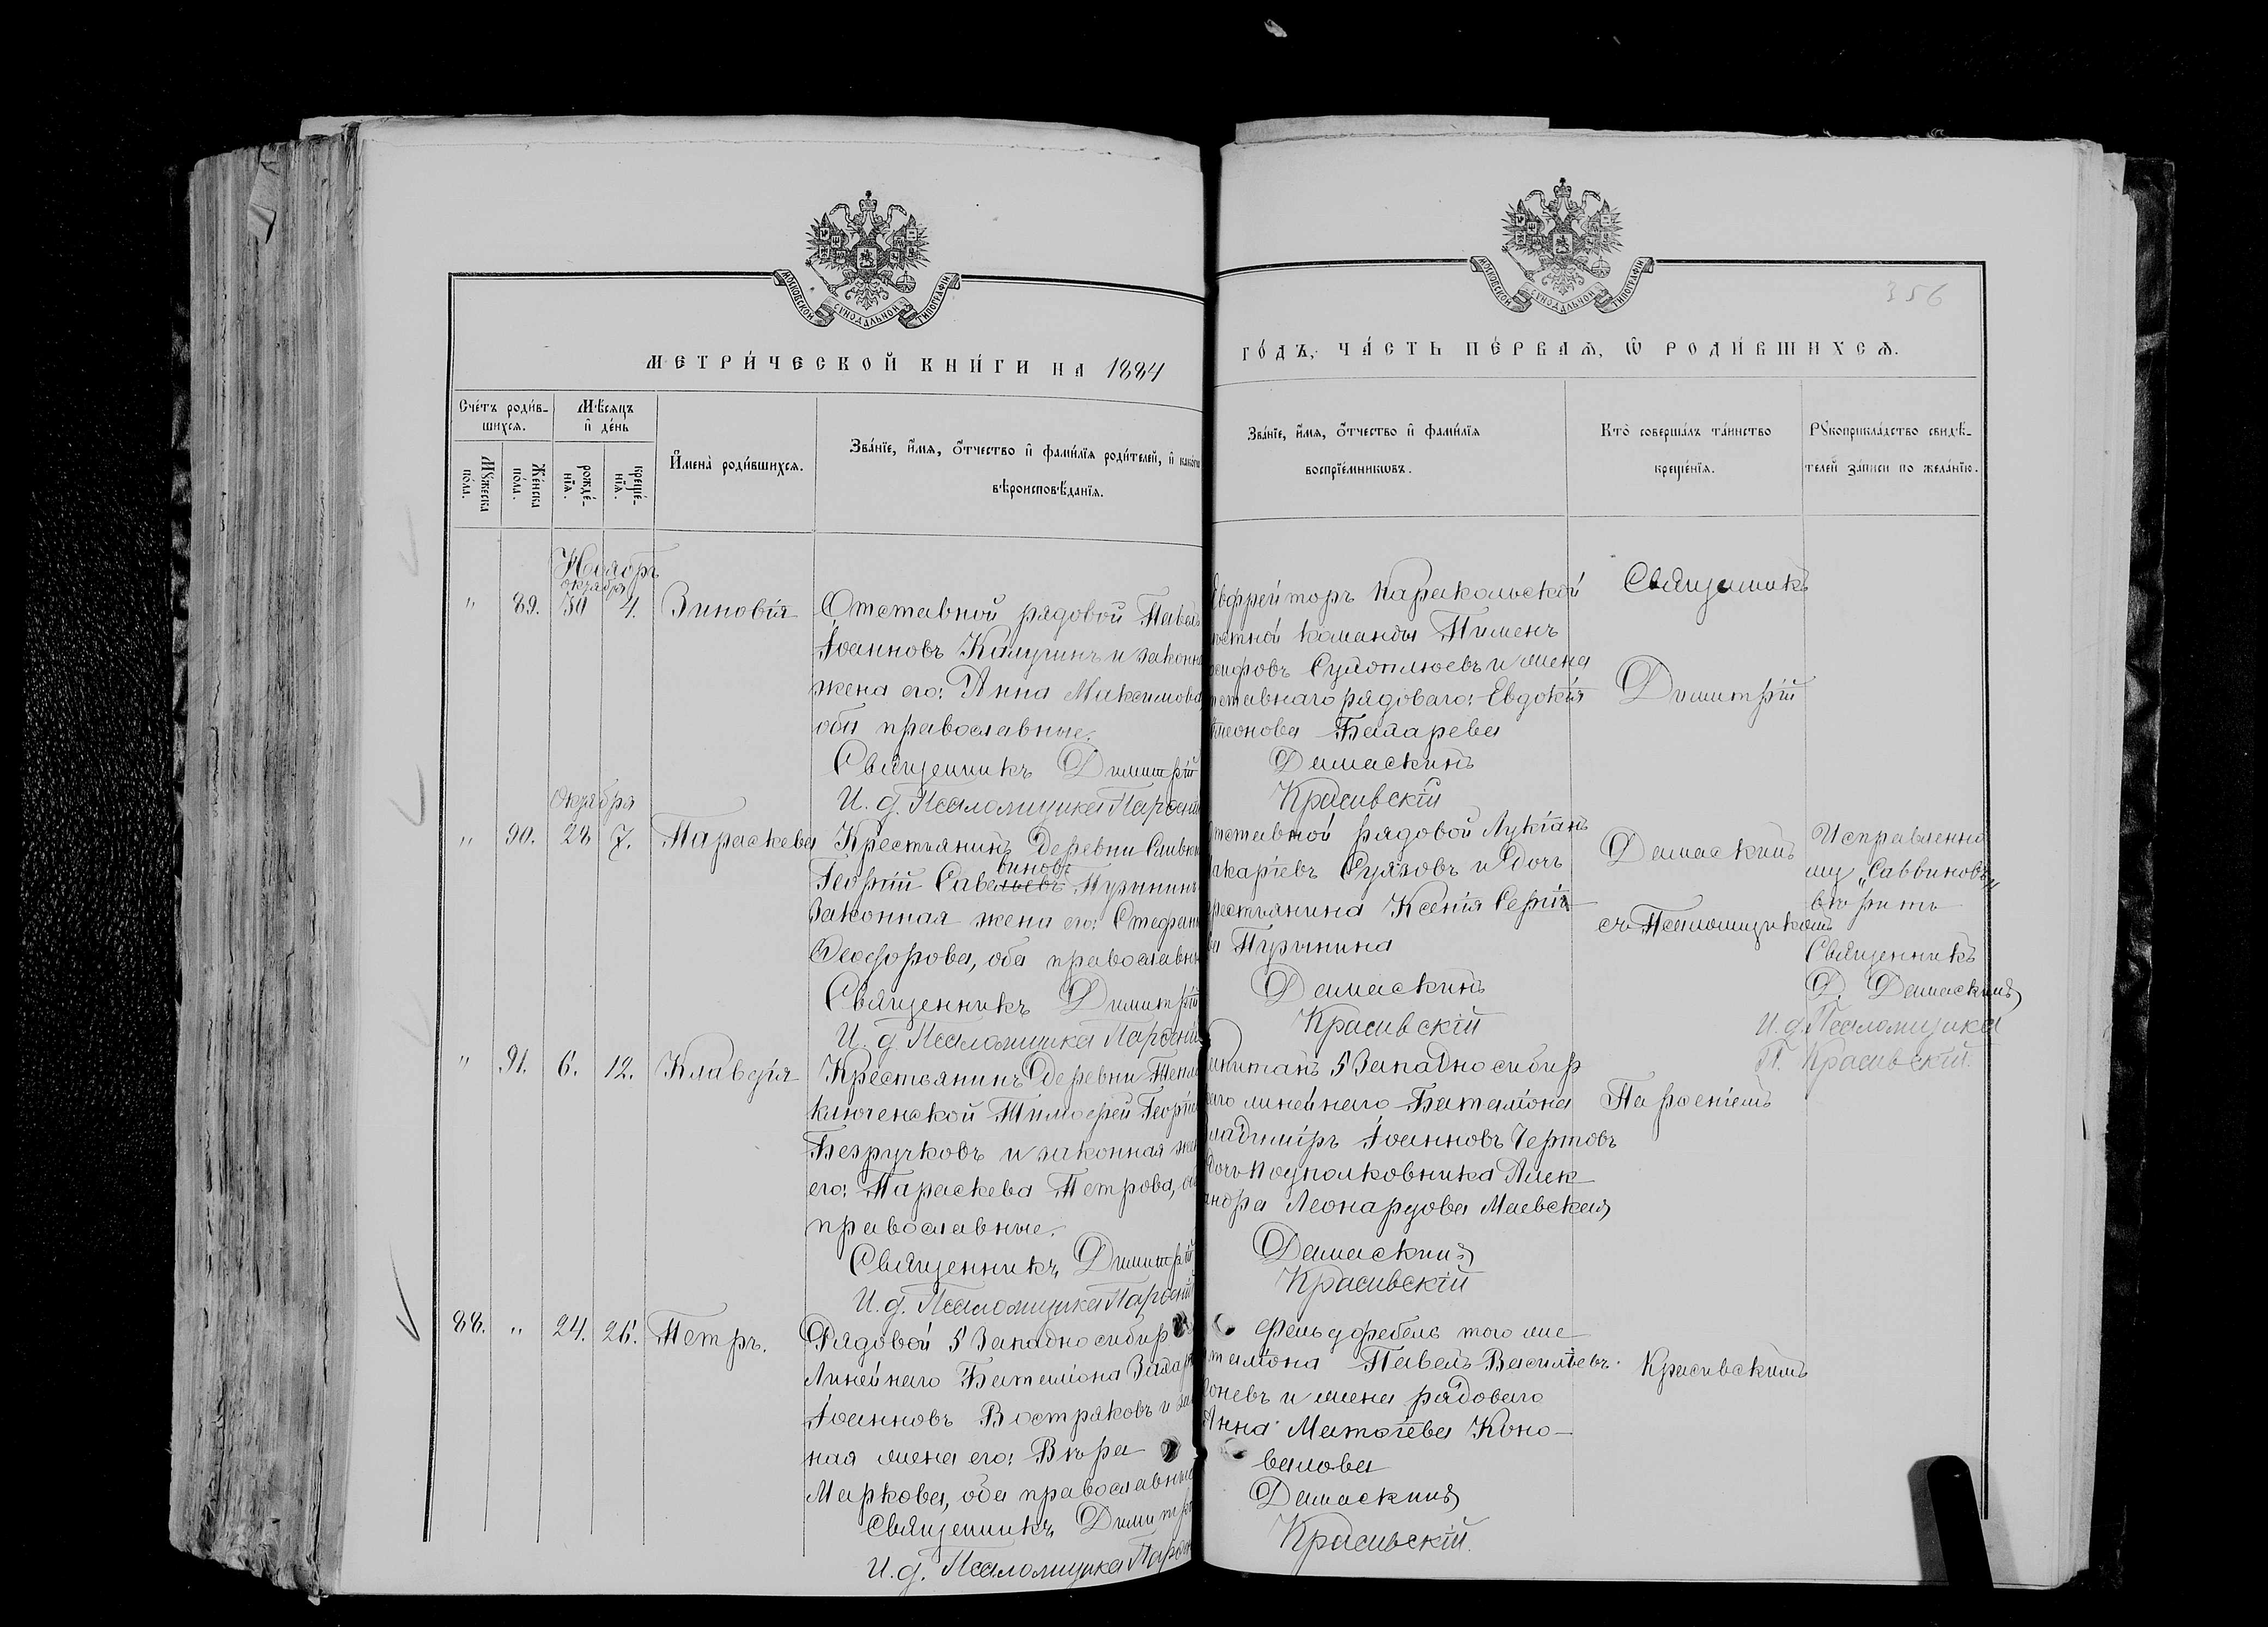 356
МЕТРИ́ЧЕСКОЙ КНИ́ГИ НА 1884
ГО́ДЪ, ЧА́СТЬ ПЕ́РВАѦ, Ѡ РОДИ́ВШИХСѦ.
МОСКОВСКОЙ СѴНОДАЛЬНОЙ ТИПОГРАФІИ
МОСКОВСКОЙ СѴНОДАЛЬНОЙ ТИПОГРАФІИ
Сче́тъ роди́в-
шихсѧ.
Мѣ́сѧцъ
и҆ де́нь
Мꙋ́жеска
по́ла.
Же́нска
по́ла.
рожде́-
нїѧ.
креще́-
нїѧ.
И҆мена̀ роди́вшихсѧ.
Зва́нїе, и҆́мѧ, ѻ҆́тчество и҆ фами́лїѧ роди́телей, и҆ како́гѡ
вѣроисповѣ́данїѧ.
Зва́нїе, и҆́мѧ, ѻ҆́тчество и҆ фами́лїѧ
воспрїе́мникѡвъ.
Кто̀ соверша́лъ та́инство
креще́нїѧ.
Рꙋкоприкла́дство свидѣ́-
телей за́писи по жела́нїю.
Ноябрь
октября
" 89. 30 4. Зиновія
Отставной рядовой Павелъ
Іоанновъ Калугинъ и законна
жена его: Анна Максимова
оба православные.
Священникъ Димитрій
И. д. Псаломщика Парѳеній
Ефрейторъ Каракольской
мѣстной команды Пименъ
Сулоплюевъ и жена
отставнаго рядоваго: Евдокія
Симеонова Бахарева
Дамаскинъ
Красивскій
Священникъ
Димитрій
Октября
" 90. 28 7. Параскева
Крестьянинъ деревни Сливки
виновъ
Георгій Савельевъ Пурынинъ
Законная жена его: Стефани
Ѳеодорова, оба православны
Священникъ Димитрій
И. д. Псаломщика Парѳеній
Отставной рядовой Лукіанъ
Макаріевъ Суязовъ и дочь
крестьянина Ксенія Сергіе
ва Пурынина
Дамаскинъ
Красивскій
Дамаскинъ
съ Псаломщикомъ
Исправленно
му „Саввиновъ„
вѣрить
Священникъ
Д. Дамаскинъ
И. д. Псаломщика
П. Красивскій.
" 91. 6. 12. Клавдія
Крестьянинъ деревни Тепло
ключенской Тимоѳей Георгіе
Безручковъ и законная же
его: Параскева Петрова, оба
православные.
Священникъ Димитрій
И. д. Псаломщика Парѳеній
Капитанъ 5 Западно сибир
скаго линейнаго Баталіона
Владиміръ Іоанновъ Чертовъ
дочь подполковника Алек
сандра Леонардова Маевская
Дамаскинъ
Красивскій
Парѳеніемъ
88. " 24. 26. Петръ.
Рядовой 5 Западно сибир
Линейнаго Баталіона Захар
Іоанновъ Востряковъ и зак
ная жена его: Вѣра
Маркова, оба православные
Священникъ Димитрі
И. д. Псаломщика Парѳен
Фельдфебель того же
баталіона Павелъ Васильевъ
и жена рядоваго
Анна Матѳіева Коно-
валова
Дамаскинъ
Красивскій.
Красивскимъ